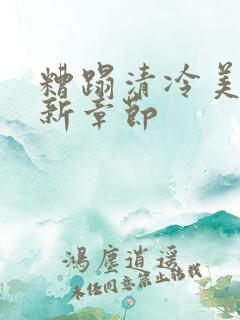 糟蹋清冷美
新章节
鸿尘逍遥
未经同意禁止转载